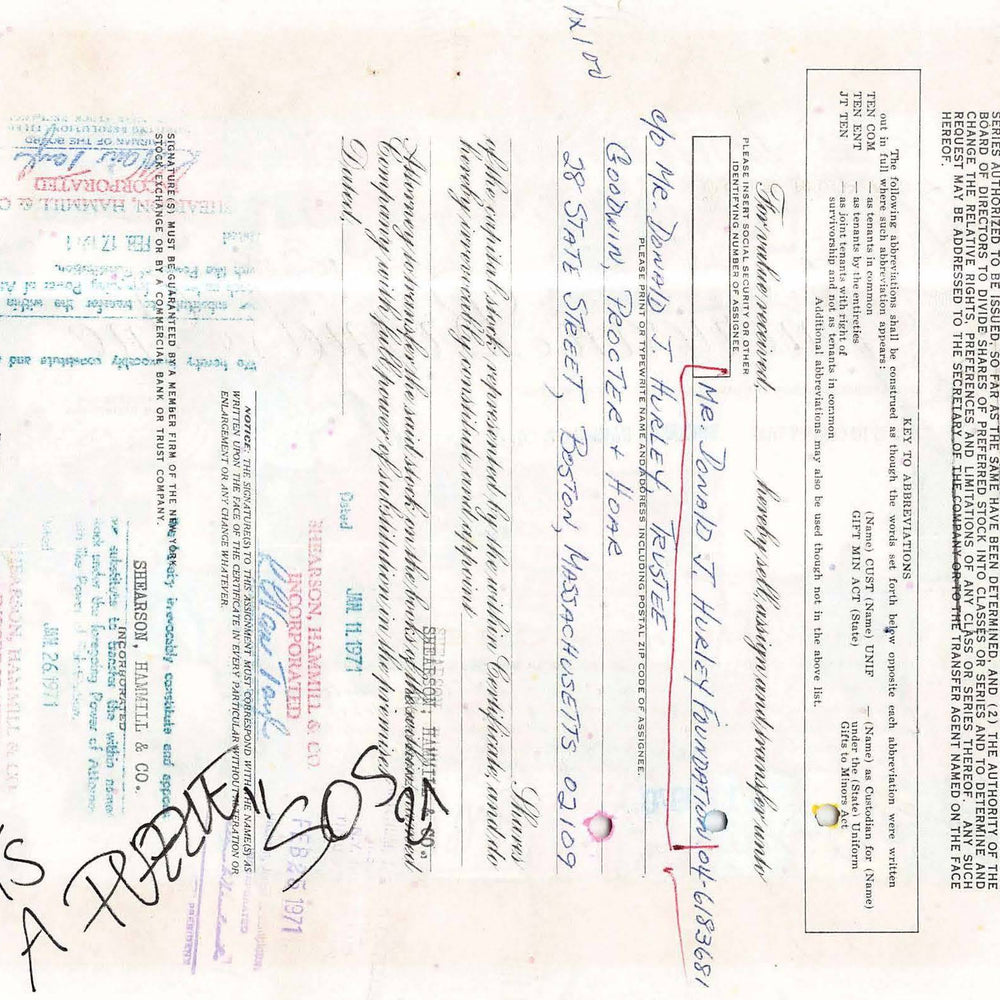 SERIES AUTHORIZED TO BE ISSUED, SO FAR AS THE SAME HAVE BEEN DETERMINED AND (2) THE AUTHORITY OF THE
BOARD OF DIRECTORS TO DIVIDE SHARES OF PREFERRED STOCK INTO CLASSES OR SERIES AND TO DETERMINE AND
CHANGE THE RELATIVE RIGHTS, PREFERENCES AND LIMITATIONS OF ANY CLASS OR SERIES THEREOF. ANY SUCH
REQUEST MAY BE ADDRESSED TO THE SECRETARY OF THE COMPANY OR TO THE TRANSFER AGENT NAMED ON THE FACE
HEREOF.
KEY TO ABBREVIATIONS
The following abbreviations shall be construed as though the words set forth below opposite each abbreviation were written
out in full where such abbreviation appears:
TEN COM — as tenants in common (Name) CUST (Name) UNIF — (Name) as Custodian for (Name)
TEN ENT — as tenants by the entireties GIFT MIN ACT (State) under the (State) Uniform
JT TEN — as joint tenants with right of Gifts to Minors Act
survivorship and not as tenants in common
Additional abbreviations may also be used though not in the above list.
For value received, hereby sell, assign and transfer unto
PLEASE INSERT SOCIAL SECURITY OR OTHER
IDENTIFYING NUMBER OF ASSIGNEE
MR. DONALD J. HURLEY FOUNDATION 04-6183681
c/o MR. DONALD J. HURLEY, TRUSTEE
PLEASE PRINT OR TYPEWRITE NAME AND ADDRESS INCLUDING POSTAL ZIP CODE OF ASSIGNEE.
GOODWIN, PROCTER + HOAR
28 STATE STREET, BOSTON, MASSACHUSETTS 02109
Shares
of the capital stock represented by the within Certificate, and do
hereby irrevocably constitute and appoint
SHEARSON, HAMMILL
Attorney to transfer the said stock on the books of the within named
Company with full power of substitution in the premises.
Dated,
Dated JAN. 11. 1971
SHEARSON, HAMMILL & CO.
INCORPORATED
NOTICE: THE SIGNATURE(S) TO THIS ASSIGNMENT MUST CORRESPOND WITH THE NAME(S) AS
WRITTEN UPON THE FACE OF THE CERTIFICATE IN EVERY PARTICULAR WITHOUT ALTERATION OR
ENLARGEMENT OR ANY CHANGE WHATEVER.
FEB 26 1971
PRESIDENT
SIGNATURE(S) MUST BE GUARANTEED BY A MEMBER FIRM OF THE NEW YORK
STOCK EXCHANGE OR BY A COMMERCIAL BANK OR TRUST COMPANY.
hereby irrevocably constitute and appoint
SHEARSON, HAMMILL & CO.
INCORPORATED
substitute to transfer the within named
stock under the foregoing Power of Attorney
JAN. 26 1971
SHEARSON, HAMMILL & CO.
FEB. 17 1971
SHEARSON, HAMMILL & CO
INCORPORATED
SOS
A